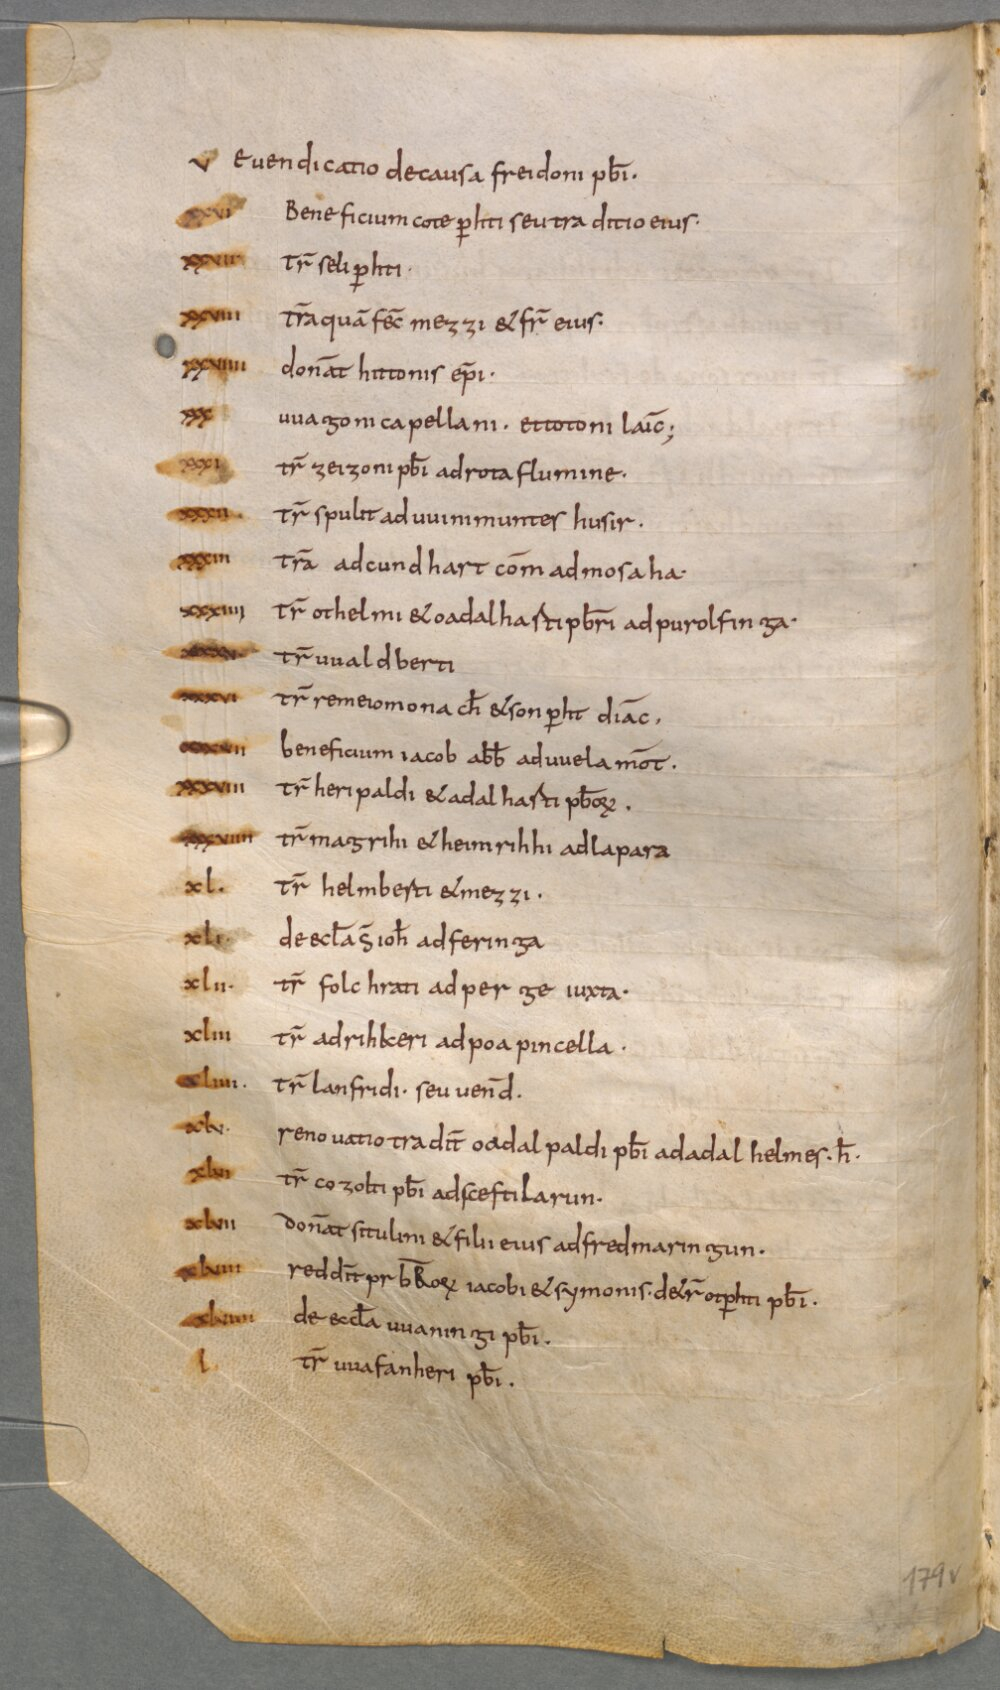 v Euendicatio de causa freidoni pb̄i.
xxvi Beneficium cotep̱hti seu traditio eius.
xxvii tr̄ selip̱hti.
xxviii tr̄a quā fec̄ mezzi & fr̄ eius.
xxviiii donāt hittonis ep̄i.
xxx uuagoni capellani. et totoni laic̄;
xxxi tr̄ zeizoni pb̄i ad rota flumine.
xxxii. tr̄ spulit ad uuimmuntes husir.
xxxiii tr̄a adcundhart com̄ ad mosaha.
xxxiiij tr̄ othelmi & oadalhasti pb̄ri ad purolfinga.
xxxv. tr̄ uualdberti
xxxvi tr̄ remeio monach̄ & sonp̱ht diāc.
xxxvii beneficium iacob abb̄ ad uuelamōt.
xxxviii tr̄ heripaldi & adalhasti pb̄oꝝ.
xxxviiii tr̄ magrihi & heimrihhi ad lapara
xl. tr̄ helmberti & mezzi.
xli. de eccl̄a s̄ ioh̄ ad feringa
xlii. tr̄ folchrati ad perge iuxta.
xliii tr̄ adrihkeri ad poapincella.
xliiii. tr̄ lanfridi. seu uend̄.
xlv. renouatio tradit̄ oadalpaldi pb̄i ad adalhelmes. h̄.
xlvi tr̄ cozolti pb̄i ad sceftilarun.
xlvii donāt situlini & filii eius ad fredmaringun.
xlviii reddit̄ pr b̄Roꝝ iacobi & symonis. de &r̄ otp̱hti pb̄i.
xlviiii de eccl̄a uuaningi pb̄i.
l tr̄ uuafanheri pb̄i.
179v